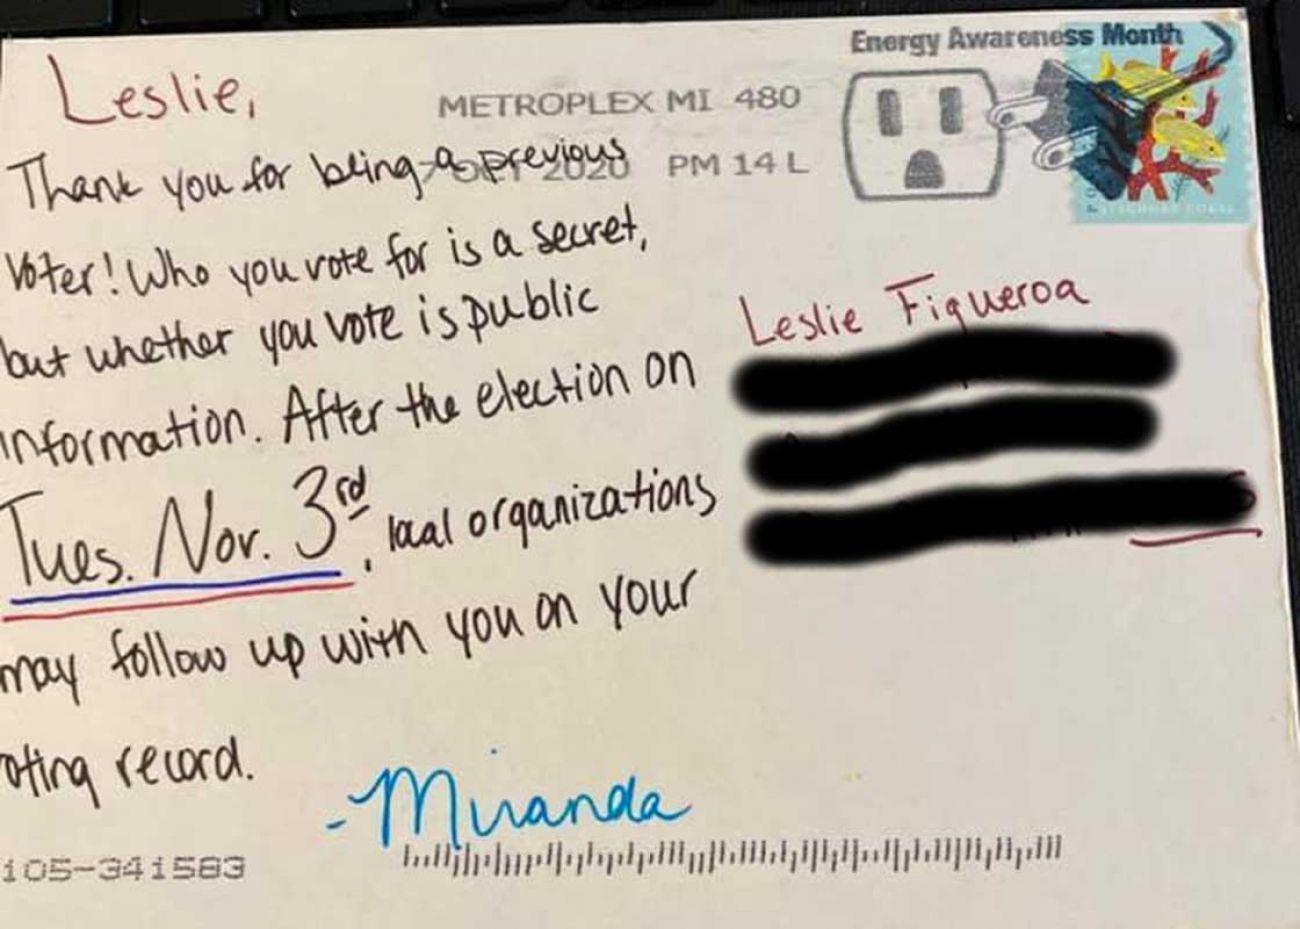 Energy Awareness Month
METROPLEX MI 480
PM 14 L
Leslie,
Thank you for being a previous
voter! Who you vote for is a secret,
but whether you vote is public
information. After the election on
Tues. Nov. 3rd, local organizations
may follow up with you on your
oting record.
-Miranda
Leslie Figueroa
105-341583